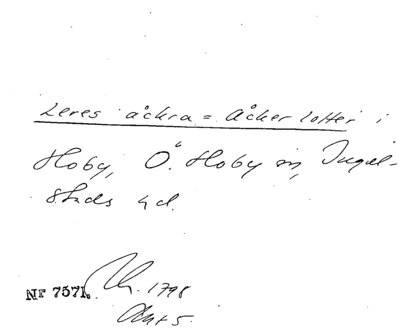 Leres åckra = Åckerlotter i
Hoby, Ö. Hoby sn, Ingel-
stads hd.
NF 7571. 1798
Akt 5.